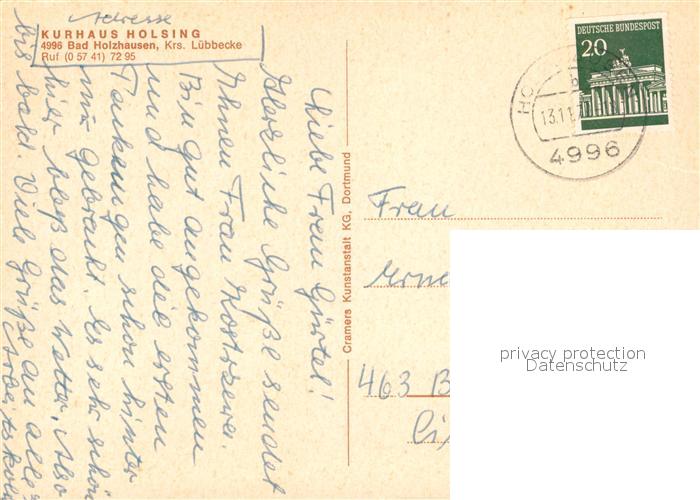 Adresse
KURHAUS HOLSING
4996 Bad Holzhausen, Krs. Lübbecke
Ruf (0 57 41) 72 95
Liebe Frau Gürtel!
Herzliche Grüße sendet
Ihnen Frau
Bin gut angekommen
und habe die ersten
schon hinter
mir gebracht. Es sehr schön
hier bloß das Wetter, Also
bis bald. Viele Grüße an alle
Cramers Kunstanstalt KG, Dortmund
DEUTSCHE BUNDESPOST
20
HO
13.11.
4996
Frau
463 B
privacy protection
Datenschutz